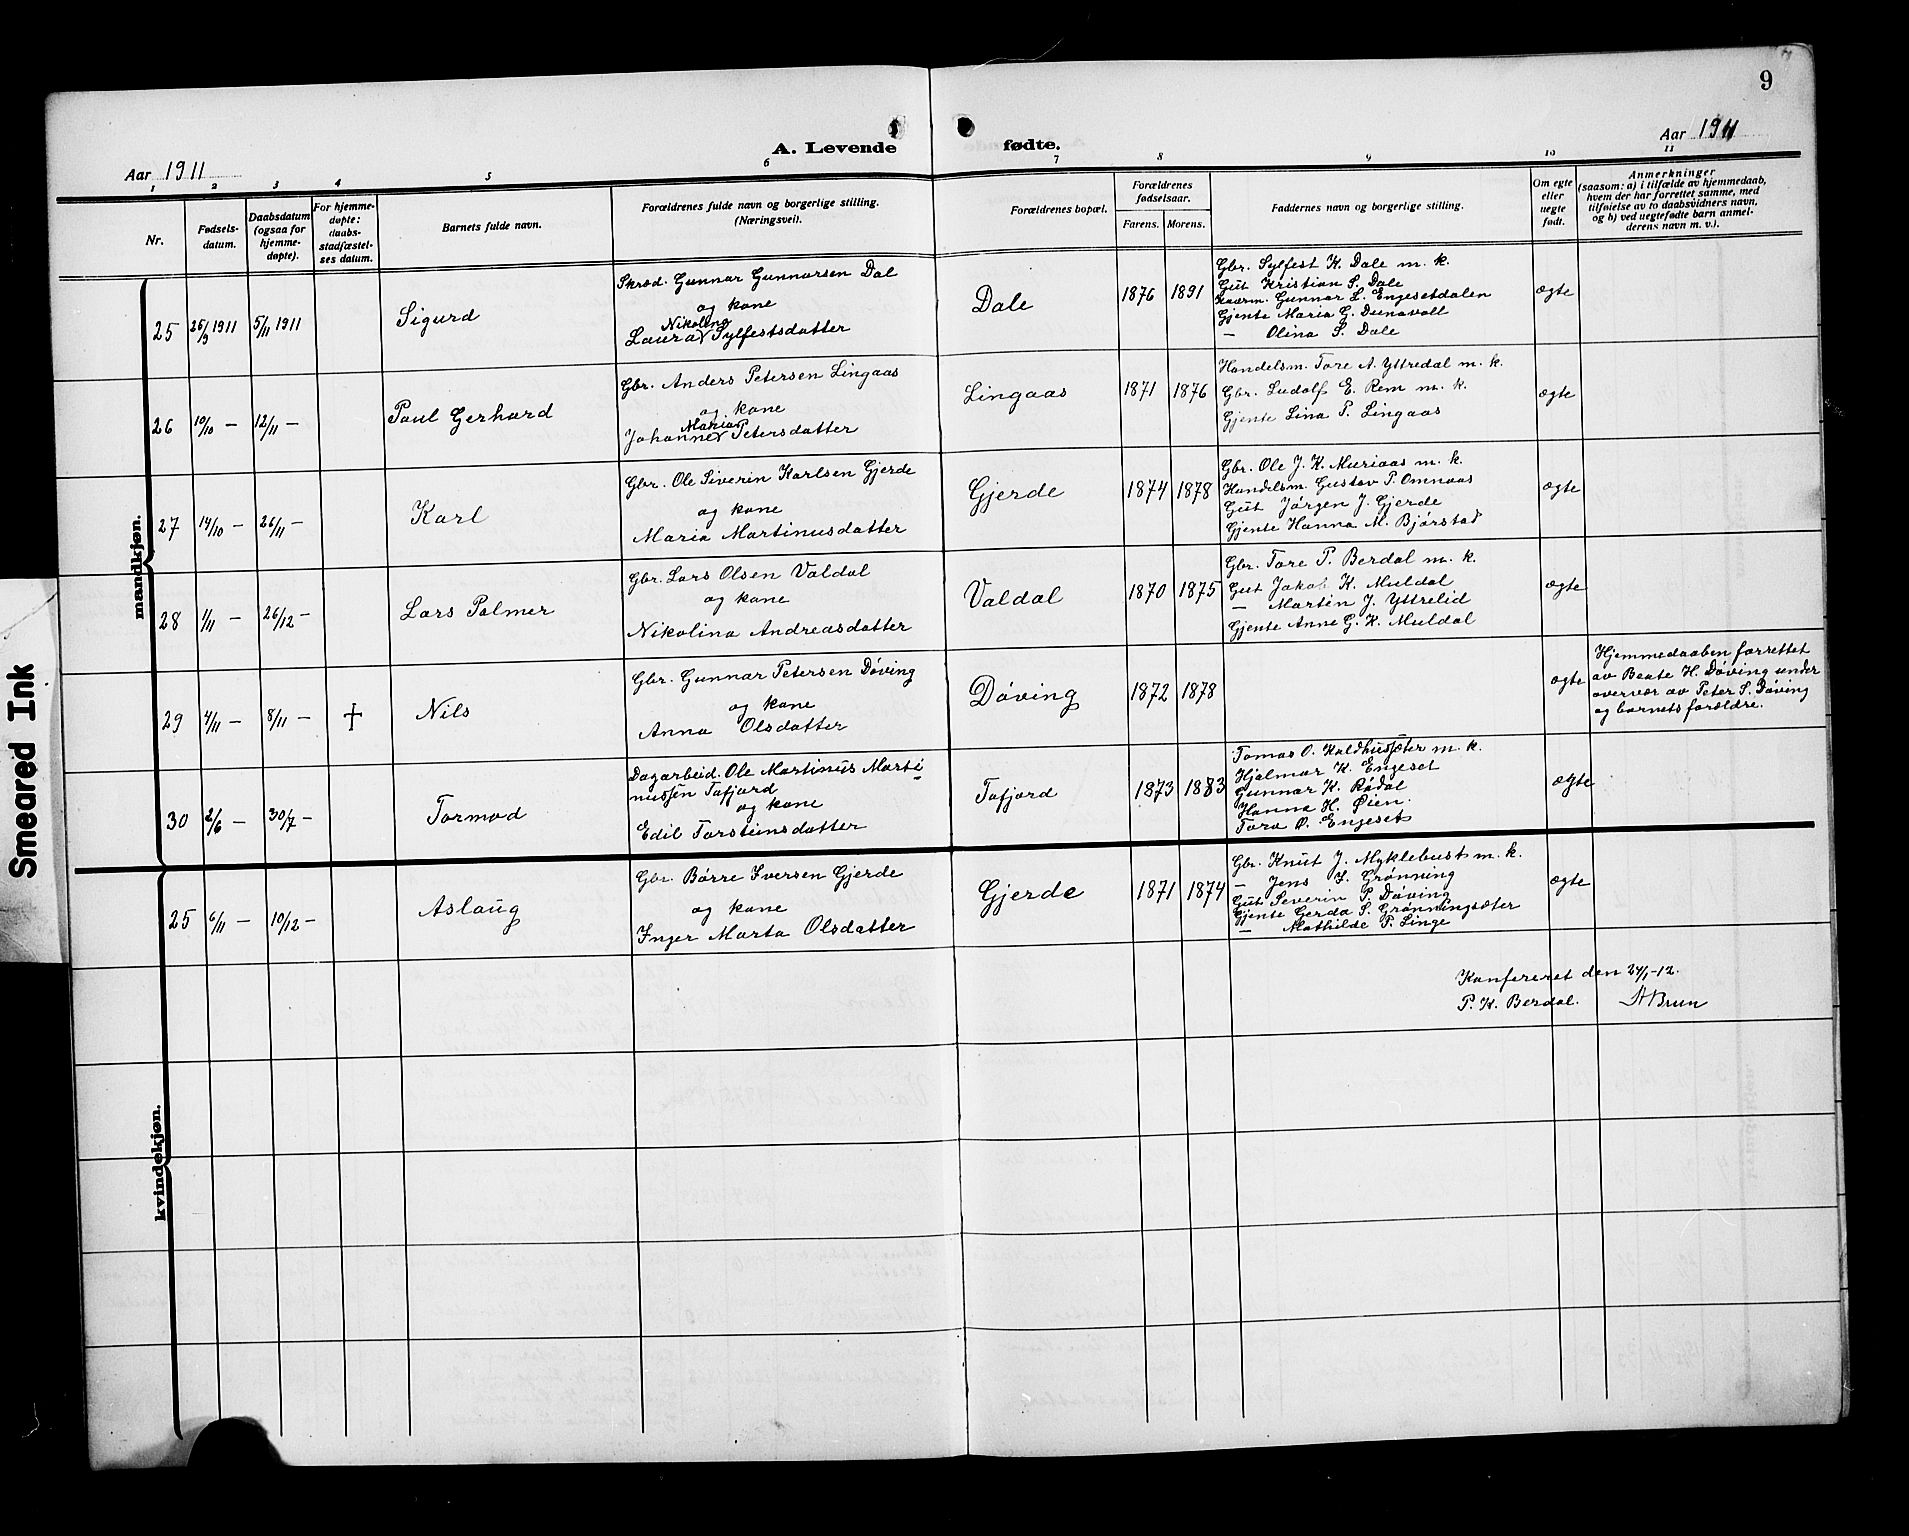 9
A. Levende fødte.
Aar 1911
Aar 1911
1 2 3 4 5 6 7 8 9 10 11
Nr.
Fødsels-
datum.
Daabsdatum
(ogsaa for
hjemme-
døpte).
For hjemme-
døpte:
daabs-
stadfæstel-
ses datum.
Barnets fulde navn.
Forældrenes fulde navn og borgerlige stilling.
(Næringsvei).
Forældrenes bopæl.
Forældrenes
fødselsaar.
Farens. Morens.
Faddernes navn og borgerlige stilling.
Om egte
eller
uegte
født.
Anmerkninger
(saasom: a) i tilfælde av hjemmedaab,
hvem der har forrettet samme, med
tilføielse av to daabsvidners navn,
og b) ved uegtefødte barn anmel-
derens navn m. v.).
mandkjøn.
25 26/9 1911 5/11 1911 Sigurd
Skræd. Gunnar Gunnarsen Dal
og kone
Nikolina
Laura v Sylfestsdatter
Dale 1876 1891
Gbr. Sylfest K. Dale m. k.
Gut Kristian S. Dale
Gunnar L. Engesetdalen
Gjente Maria G. Dunavoll
— Olina S. Dale
ægte
26 10/10 — 12/11 — Paul Gerhard
Gbr. Anders Petersen Lingaas
og kone
Maria
Johanne v Petersdatter
Lingaas 1871 1876
Handelsm. Tore A. Yttredal m. k.
Gbr. Ludolf E. Rem m. k.
Gjente Lina P. Lingaas
ægte
27 14/10 — 26/11 — Karl
Gbr. Ole Siverin Karlsen Gjerde
og kone
Maria Martinusdatter
Gjerde 1874 1878
Gbr. Ole J. K. Muriaas m. k.
Handelsm. Gustav P. Omnaas
Gut Jørgen J. Gjerde
Gjente Hanna M. Bjørstad
ægte
28 1/11 — 26/12 — Lars Palmer
Gbr. Lars Olsen Valdal
og kone
Nikolina Andreasdatter
Valdal 1870 1875
Gbr. Tore P. Berdal m. k.
Gut Jakob K. Muldal
— Martin J. Yttrelid
Gjente Anne G. K. Muldal
ægte
29 4/11 — 8/11 — + Nils
Gbr. Gunnar Petersen Døving
og kone
Anna Olsdatter
Døving 1872 1878
ægte
Hjemmedaaben forrettet
av Beate H. Døving under
overvær av Peter S. Døving
og barnets forældre.
30 2/6 30/7 — Tormod
Dagarbeid. Ole Martinus Marti-
nussen Tafjord
og kone
Edil Torsteinsdatter
Tafjord 1873 1883
Tomas O. Kaldhussæter m. k.
Hjalmar K. Engeset
Gunnar K. Rødal
Hanna H. Øien.
Tora O. Engeset
ægte
kvindekjøn.
25 6/11 — 10/12 — Aslaug
Gbr. Børre Iversen Gjerde
og kone
Inger Marta Olsdatter
Gjerde 1871 1874
Gbr. Knut J. Myklebust m. k.
— Jens L. Grønning
Gut Severin P. Døving
Gjente Gerda S. Grønningsæter
— Mathilde P. Linge
ægte
Konfereret den 24/1-12.
P. K. Berdal. A Brun
Smeared Ink